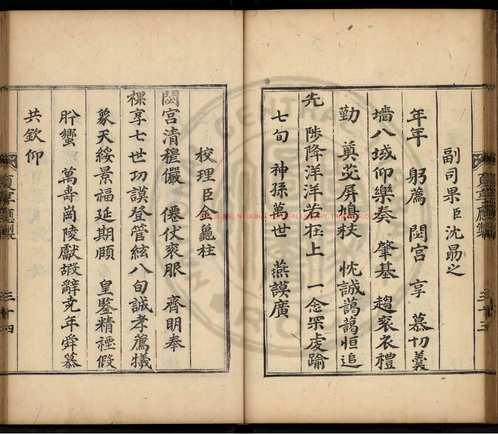 副司果臣沈勗之
年年 躬薦 閟宮 享 慕切羹
墻八域仰樂奏 肇基 趨衮衣禮
勤 奠芟屏鳩杖 忱誠藹藹恒追
先 陟降洋洋若在上 一念罙虔踰
七旬 神孫萬世 燕謨廣
校理臣金龜柱
閟宮清穆儼 僊仗衮服 齊明奉
祼享七世功謨登管絃八旬誠孝薦犧
象天綏景福延期頤 皇鑒精禋假
肸蠁 萬壽崗陵獻嘏辭 年年舜慕
共欽仰